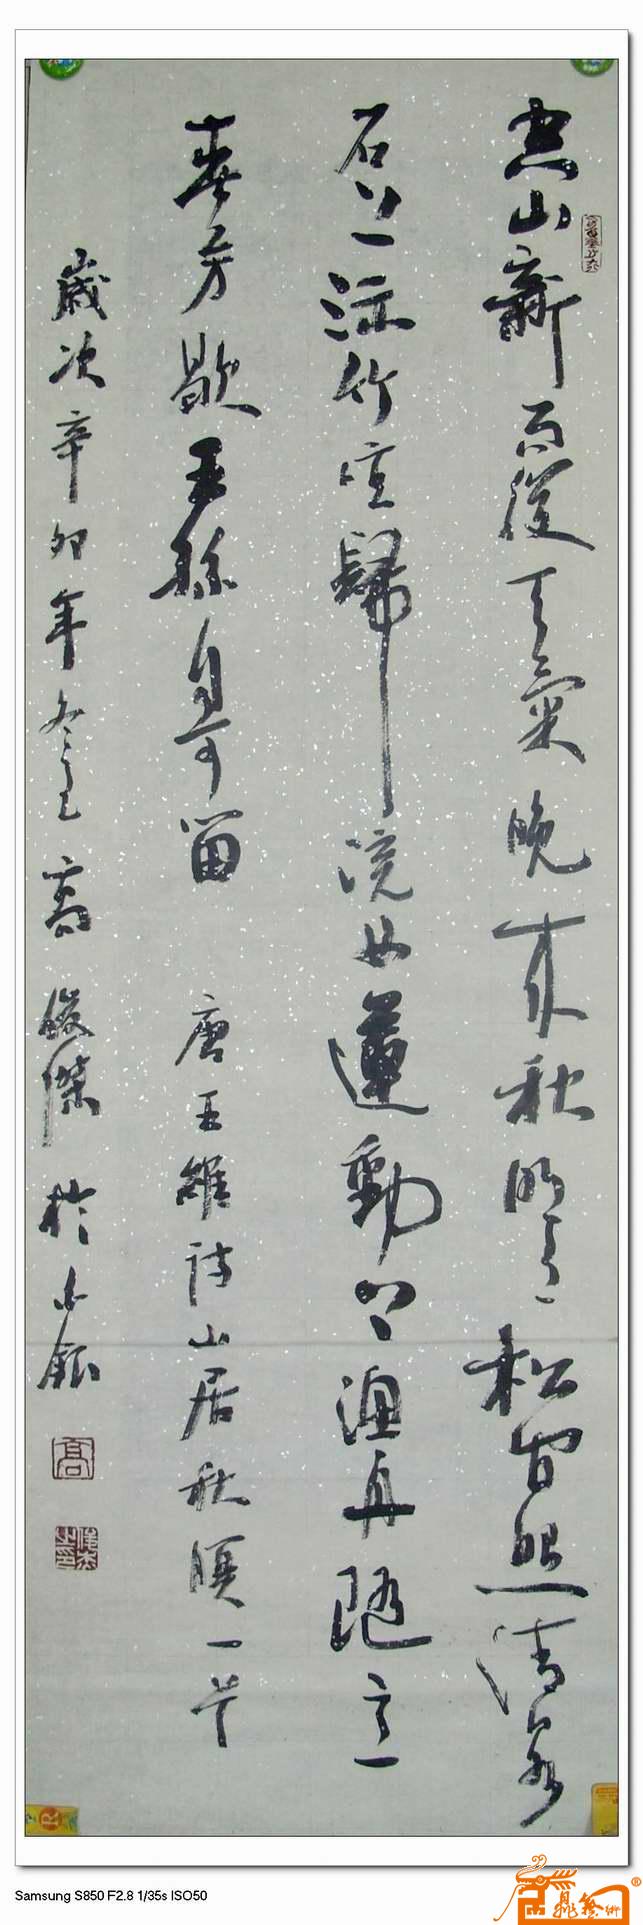 空山新雨後天氣晚來秋明月松間照清泉
石上流竹喧歸浣女蓮動下漁舟隨意
春芳歇王孫自可留 唐王維詩山居秋暝一首
歲次辛卯年冬 高 傑於白銀
高
Samsung S850 F2.8 1/35s ISO50